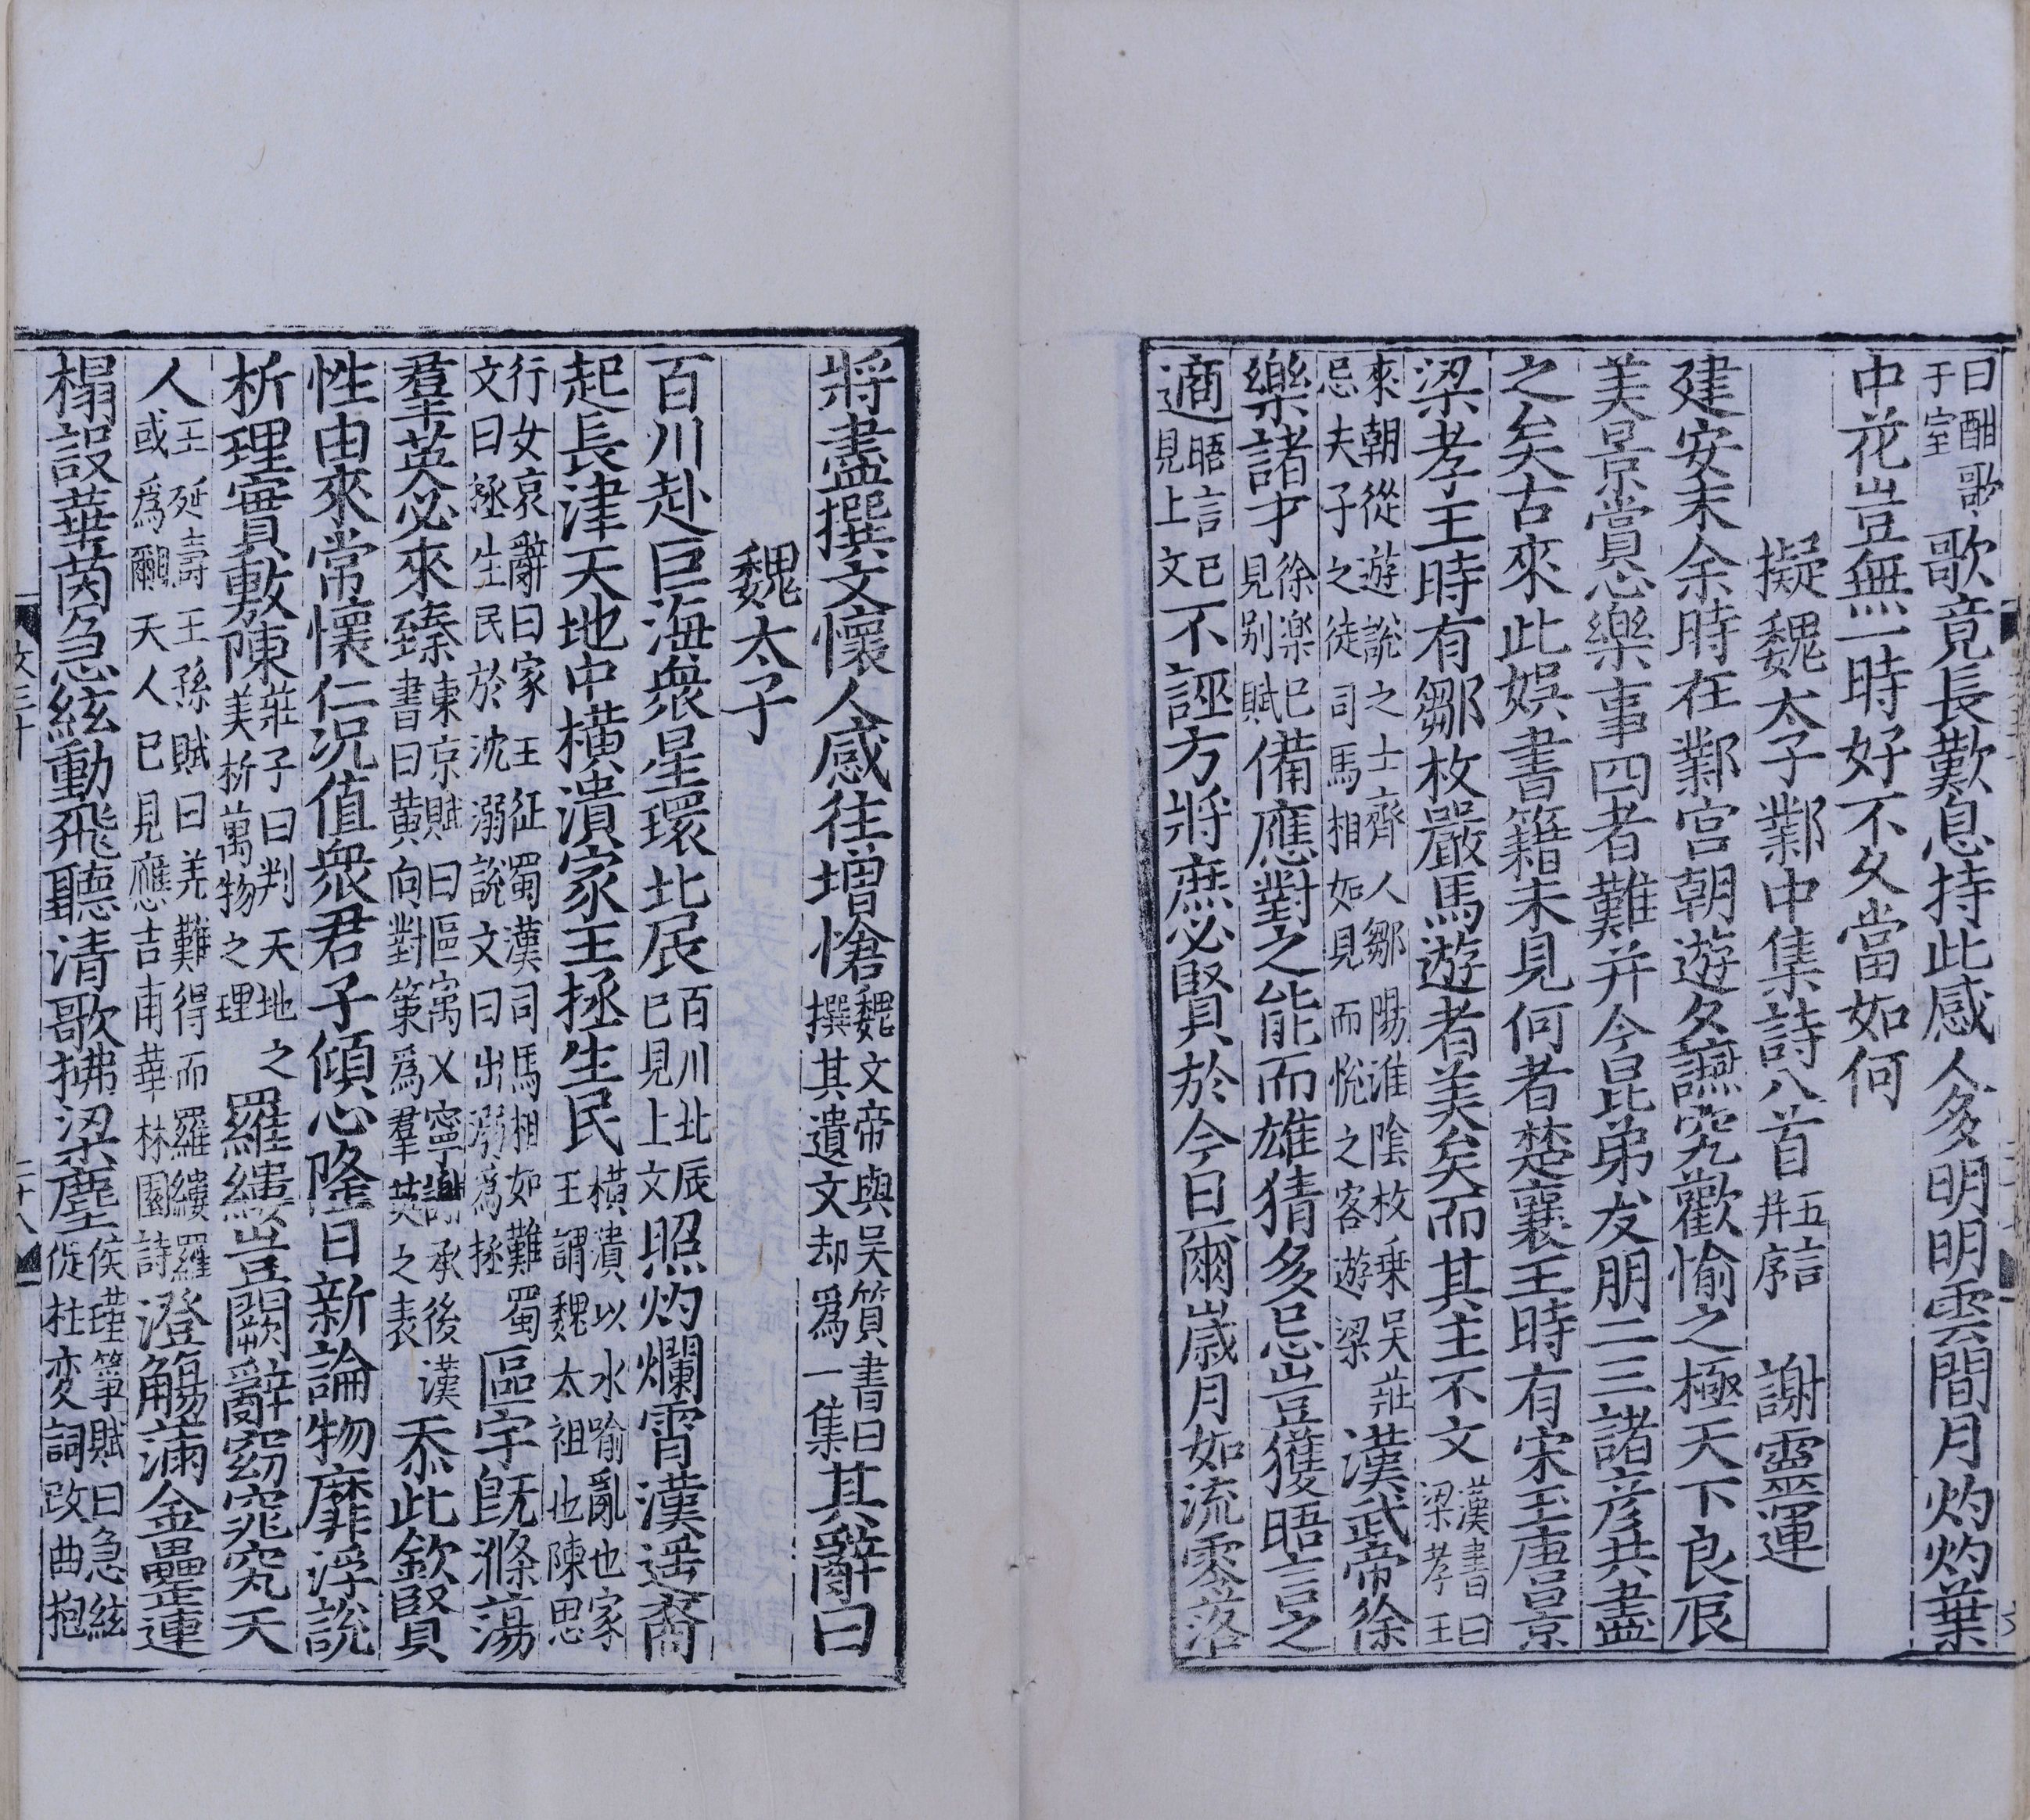 曰酣歌于室歌竟長歎息持此感人多明明雲間月灼灼葉
中花豈無一時好不久當如何
擬魏太子鄴中集詩八首五言并序　謝靈運
建安末余時在鄴宫朝遊夕讌究歡愉之極天下良辰
美景賞心樂事四者難并今昆弟友朋二三諸彦共盡
之矣古來此娱書籍未見何者楚襄王時有宋玉唐景
梁孝王時有鄒枚嚴馬遊者美矣而其主不文漢書曰梁孝王
來朝從遊說之士齊人鄒陽淮陰枚乗吴莊忌夫子之徒司馬相如見而悅之客遊梁漢武帝徐
樂諸才徐楽已見别賦備應對之能而雄猜多忌豈獲晤言之
適晤言已見上文不誣方將庶必賢於今日爾歲月如流零落
將盡撰文懷人感往增愴魏文帝與吴質書曰撰其遺文却爲一集其辭曰
魏太子
百川赴巨海衆星環北辰百川北辰已見上文照灼爛霄漢遥裔
起長津天地中橫潰家王拯生民橫潰以水喻亂也家王謂魏太祖也陳思
行女哀辭曰家王征蜀漢司馬相如難蜀文曰拯生民於沈溺說文曰出溺爲拯區宇既滌蕩
羣英必來臻東京賦曰區㝢乂寧謝承後漢書曰黄向對策爲羣英之表忝此欽賢
性由來常懷仁况值衆君子傾心隆日新論物靡浮說
析理實敷陳莊子曰判天地之美析萬物之理羅縷豈闕辭窈窕究天
人王延壽王孫賦曰羌難得而羅縷羅或爲𮉫天人已見應吉甫華林園詩澄觴滿金罍連
榻設華茵急絃動飛聽清歌拂梁塵侯瑾筝賦曰急絃促柱変詞改曲抱